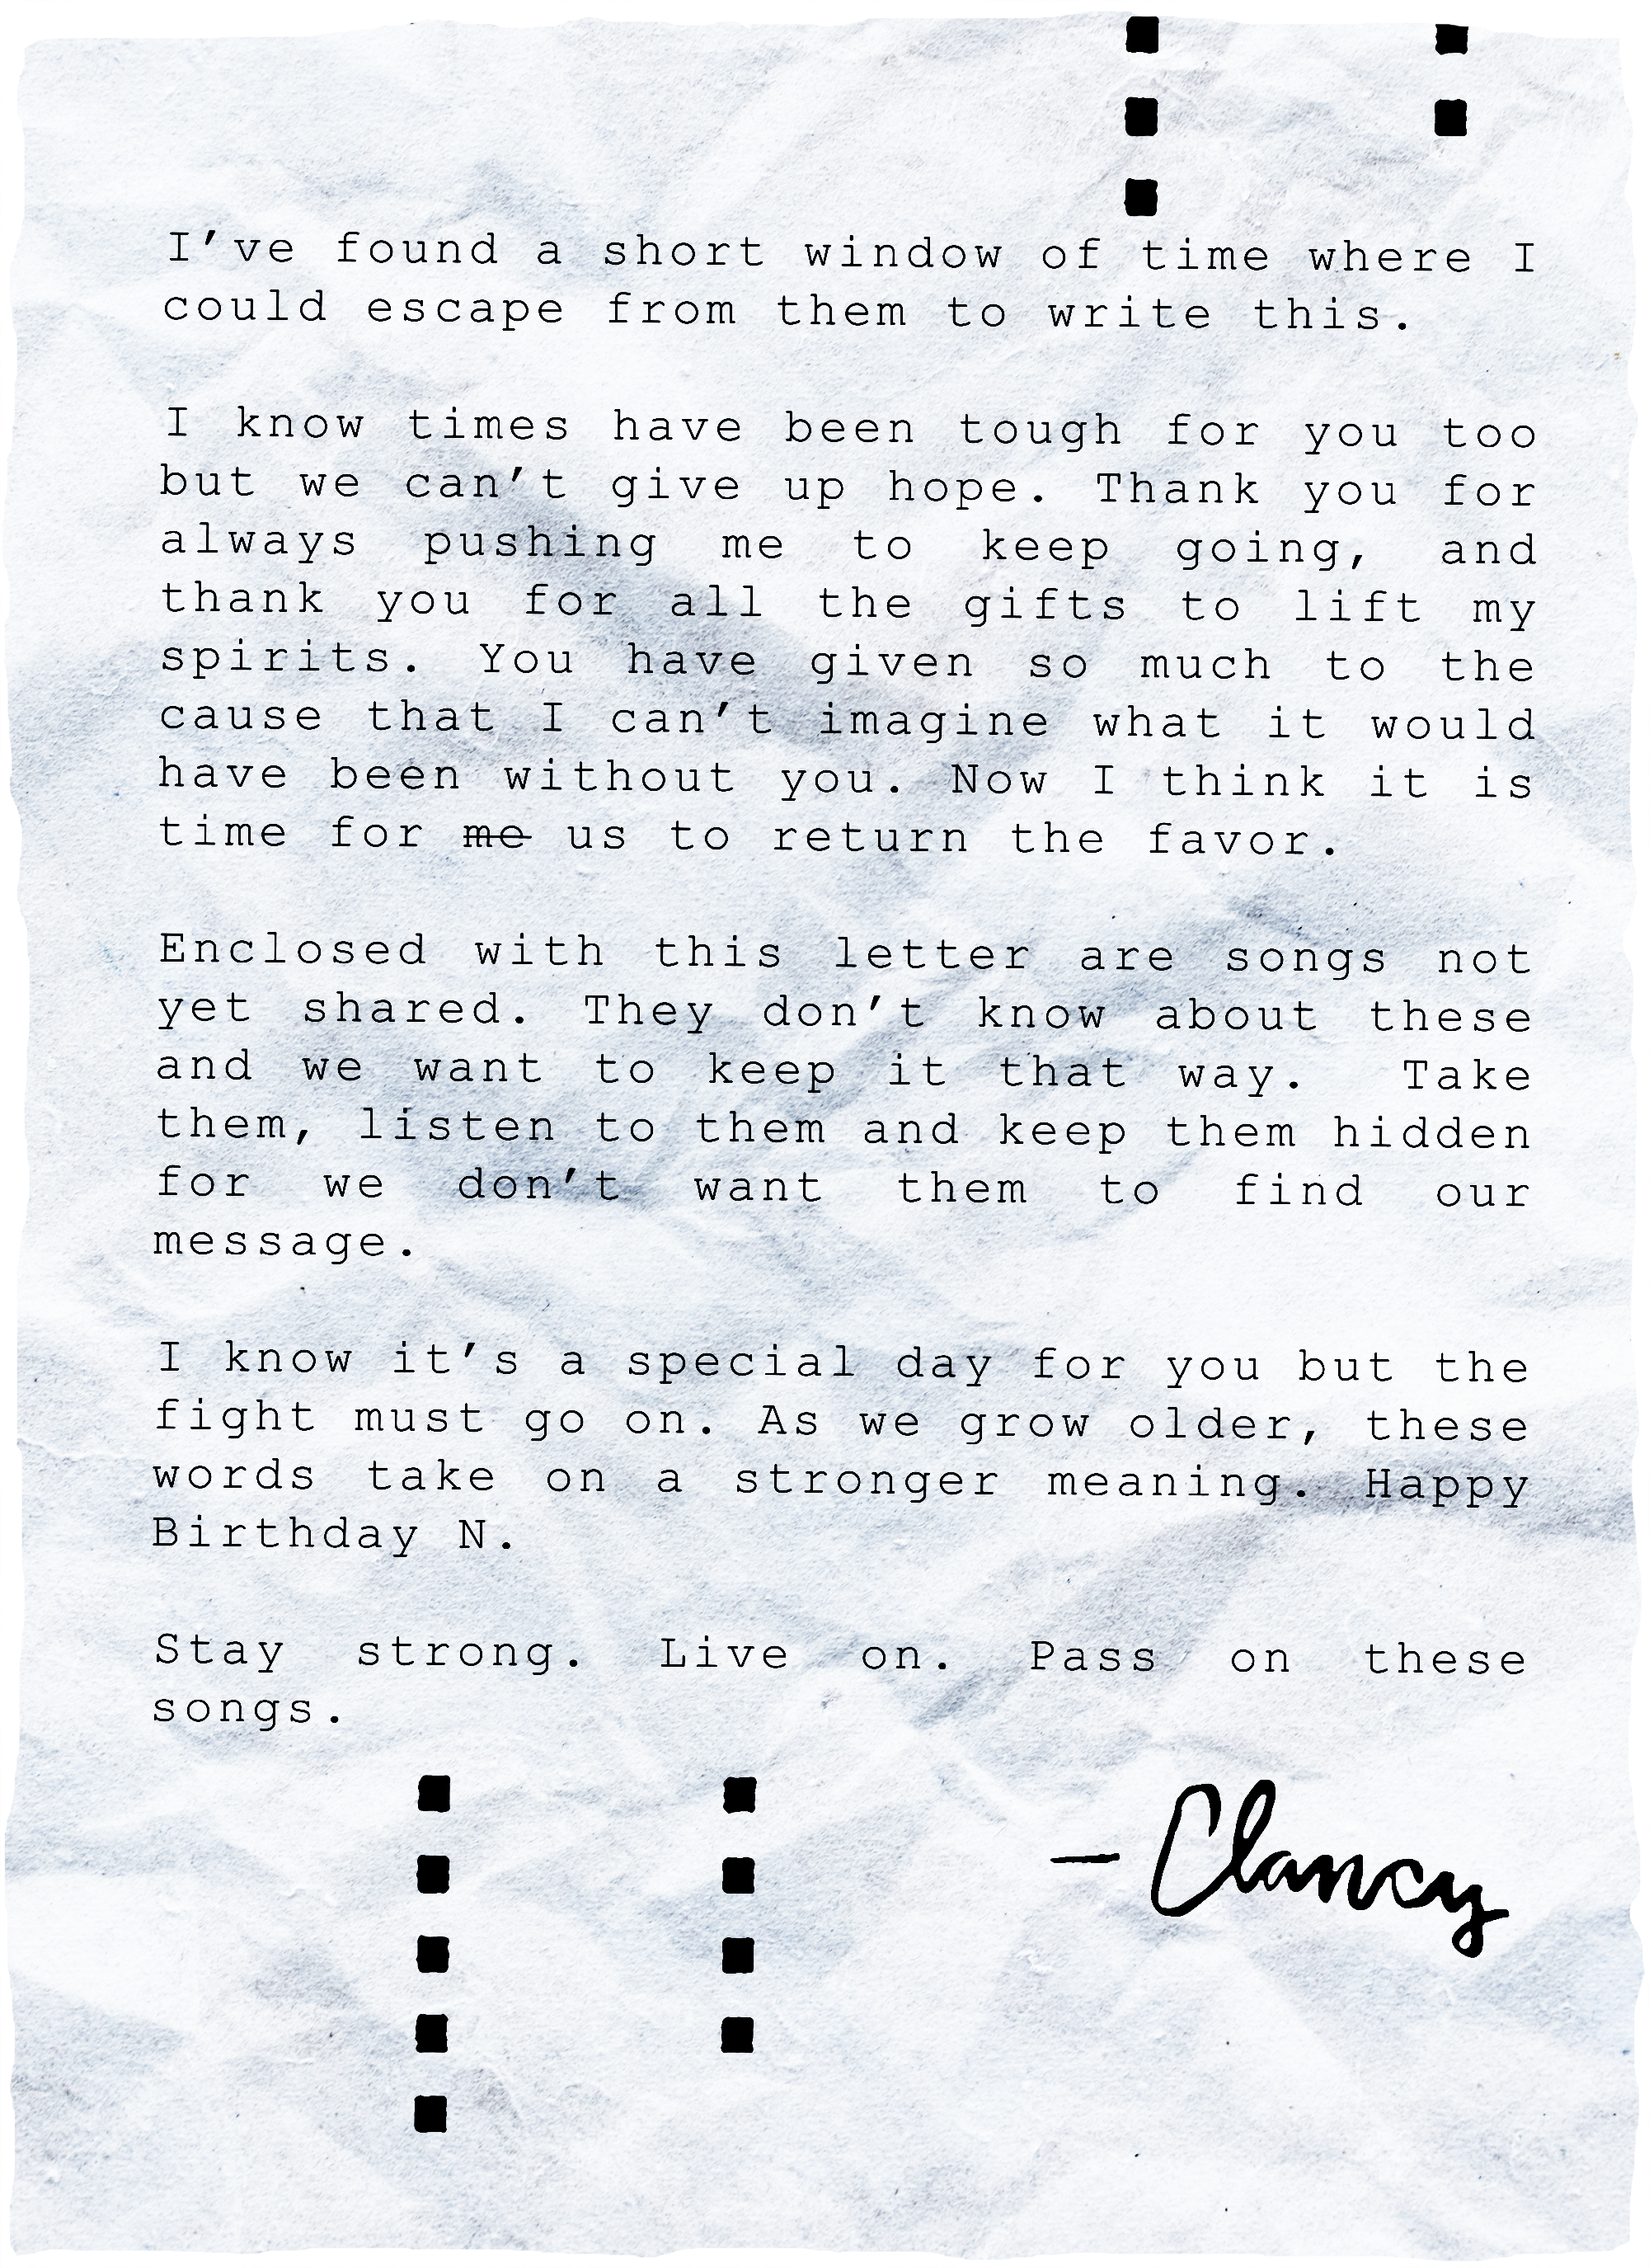 I've found a short window of time where I
could escape from them to write this.
I know times have been tough for you too
but we can't give up hope. Thank you for
always pushing me to keep going, and
thank you for all the gifts to lift my
spirits. You have given so much to the
cause that I can't imagine what it would
have been without you. Now I think it is
time for me us to return the favor.
Enclosed with this letter are songs not
yet shared. They don't know about these
and we want to keep it that way. Take
them, listen to them and keep them hidden
for we don't want them to find our
message.
I know it's a special day for you but the
fight must go on. As we grow older, these
words take on a stronger meaning. Happy
Birthday N.
Stay strong. Live on. Pass on these
songs.
— Clancy